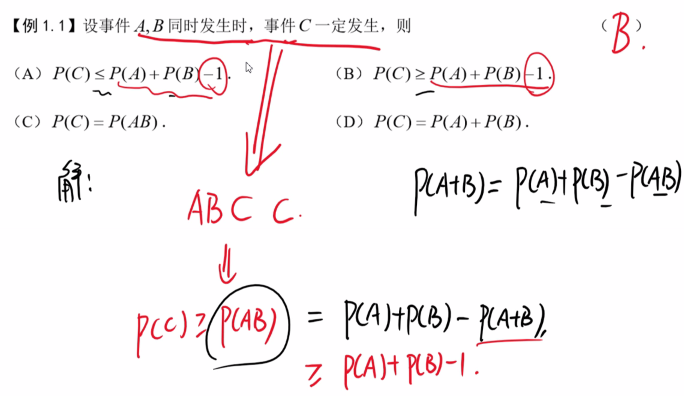 【例 1.1】设事件 A, B 同时发生时，事件 C 一定发生，则 （ B. ）
（A）P(C) ≤ P(A) + P(B) −1. （B）P(C) ≥ P(A) + P(B) −1.
（C）P(C) = P(AB). （D）P(C) = P(A) + P(B).
解: P(A+B) = P(A)+P(B) −P(AB)
AB ⊂ C.
⇓
P(C) ≥ P(AB) = P(A)+P(B) − P(A+B),
≥ P(A)+P(B)−1.